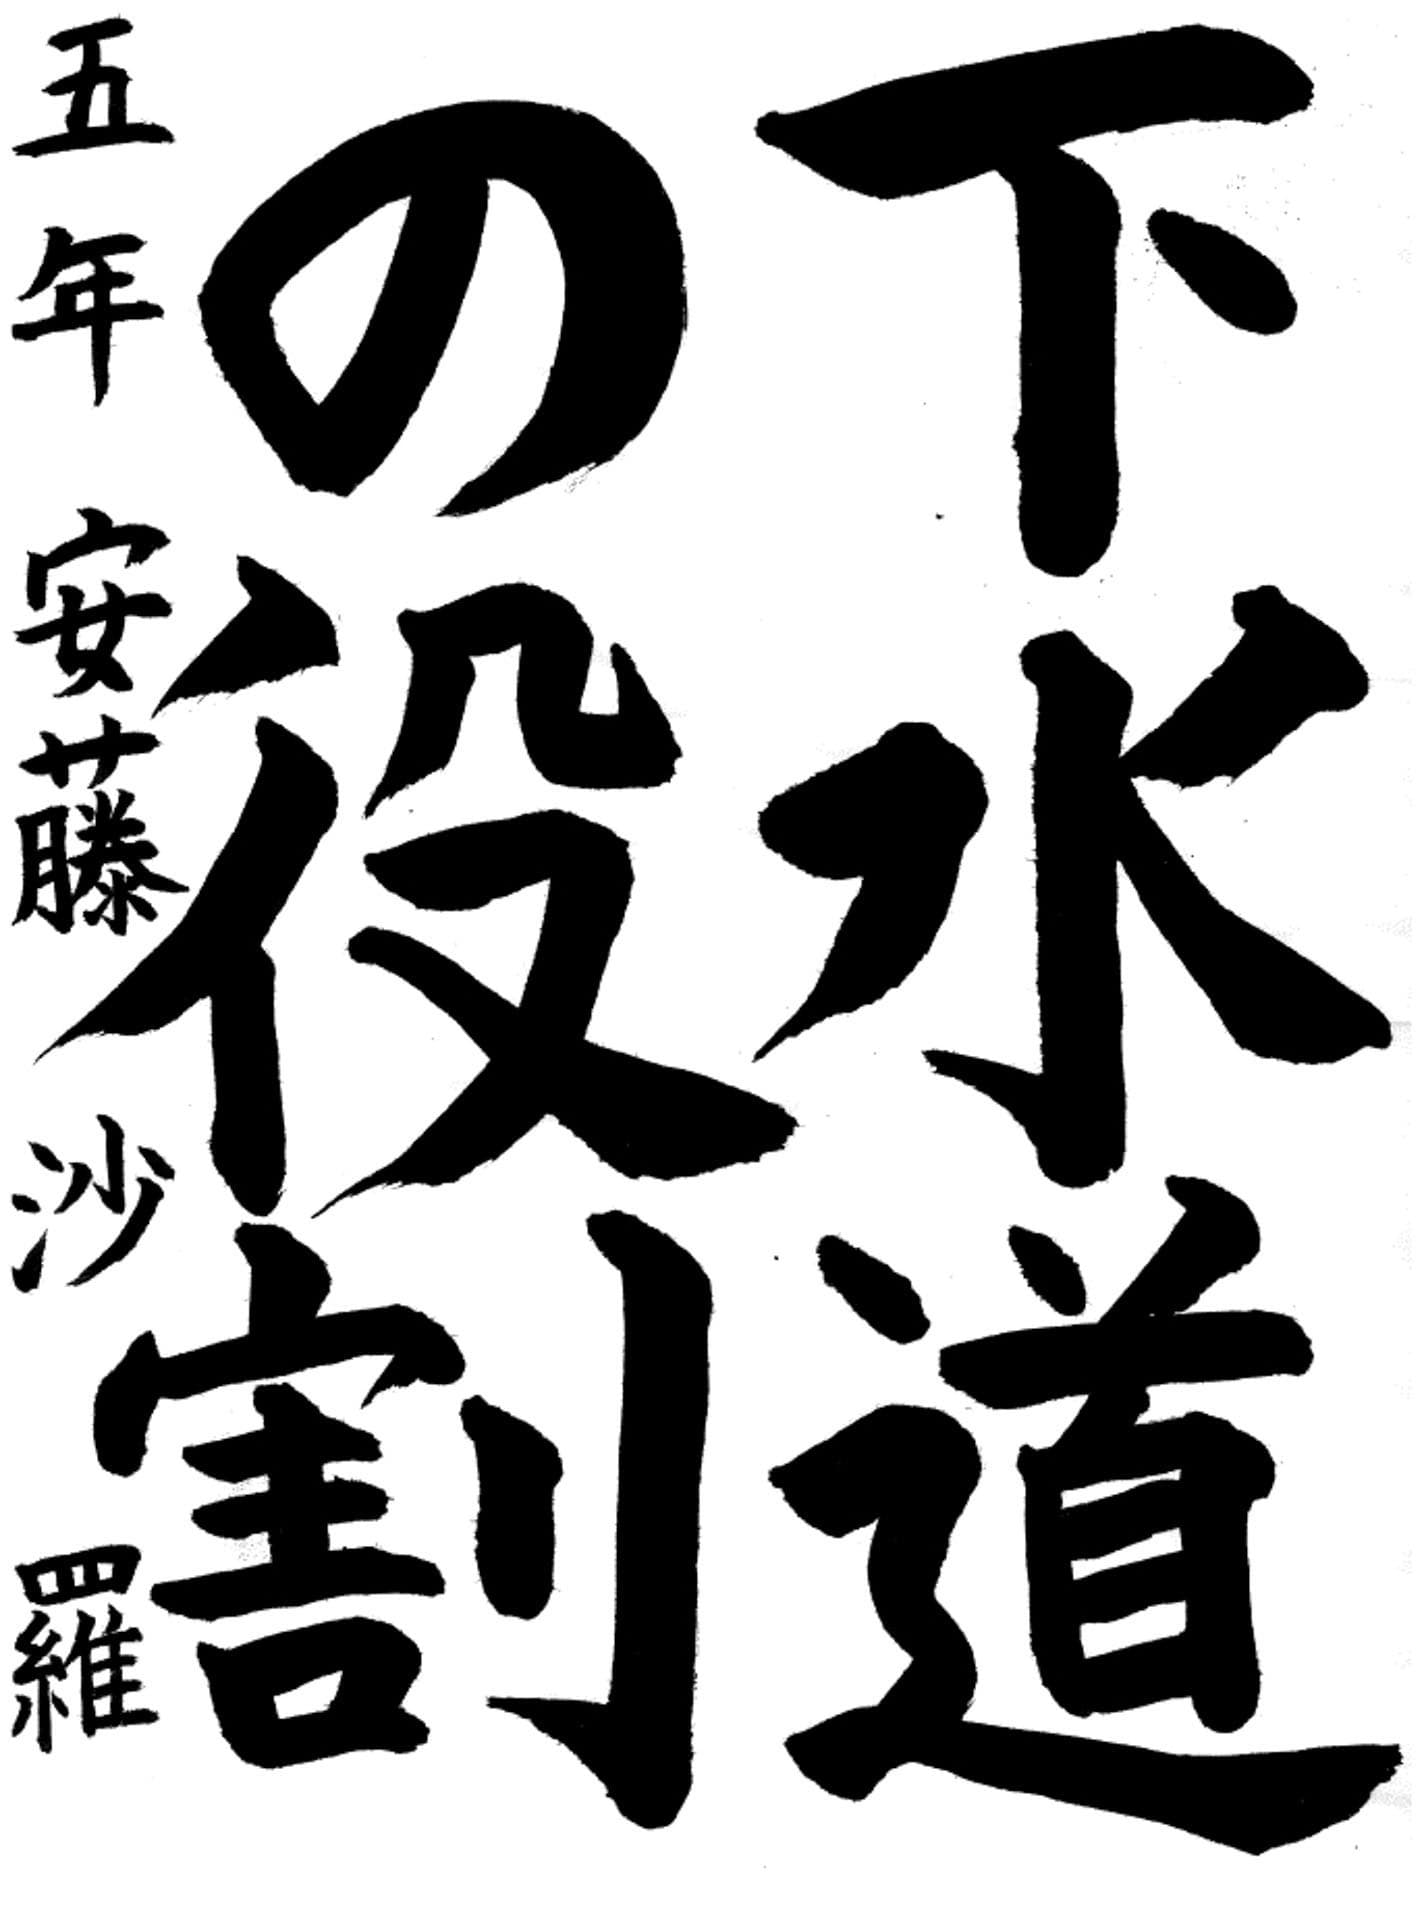 下水道
の役割
五年 安藤 沙羅